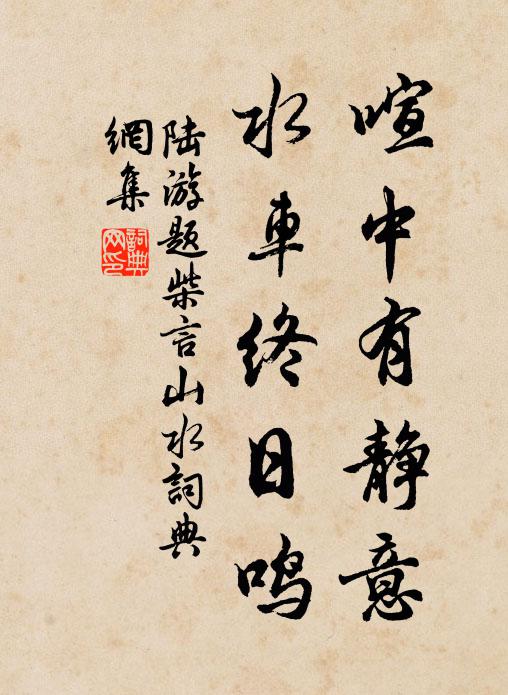 喧中有静意
水車终日鸣
陆游题柴言山水詞典
網集
詞典
网印